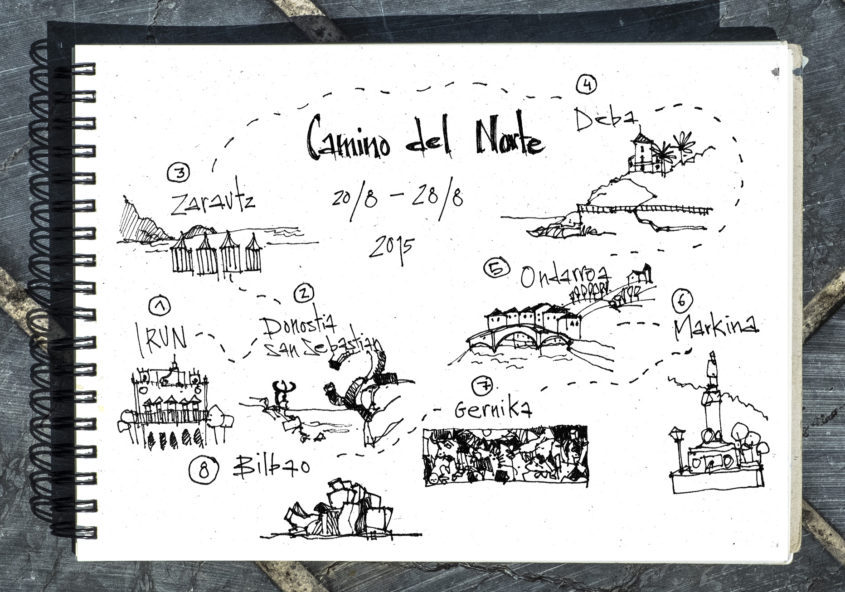 Camino del Norte
20/8 - 28/8
2015
1
IRUN
2
Donostia
San Sebastian
3
Zarautz
4
Deba
5
Ondarroa
6
Markina
7
Gernika
8
Bilbao